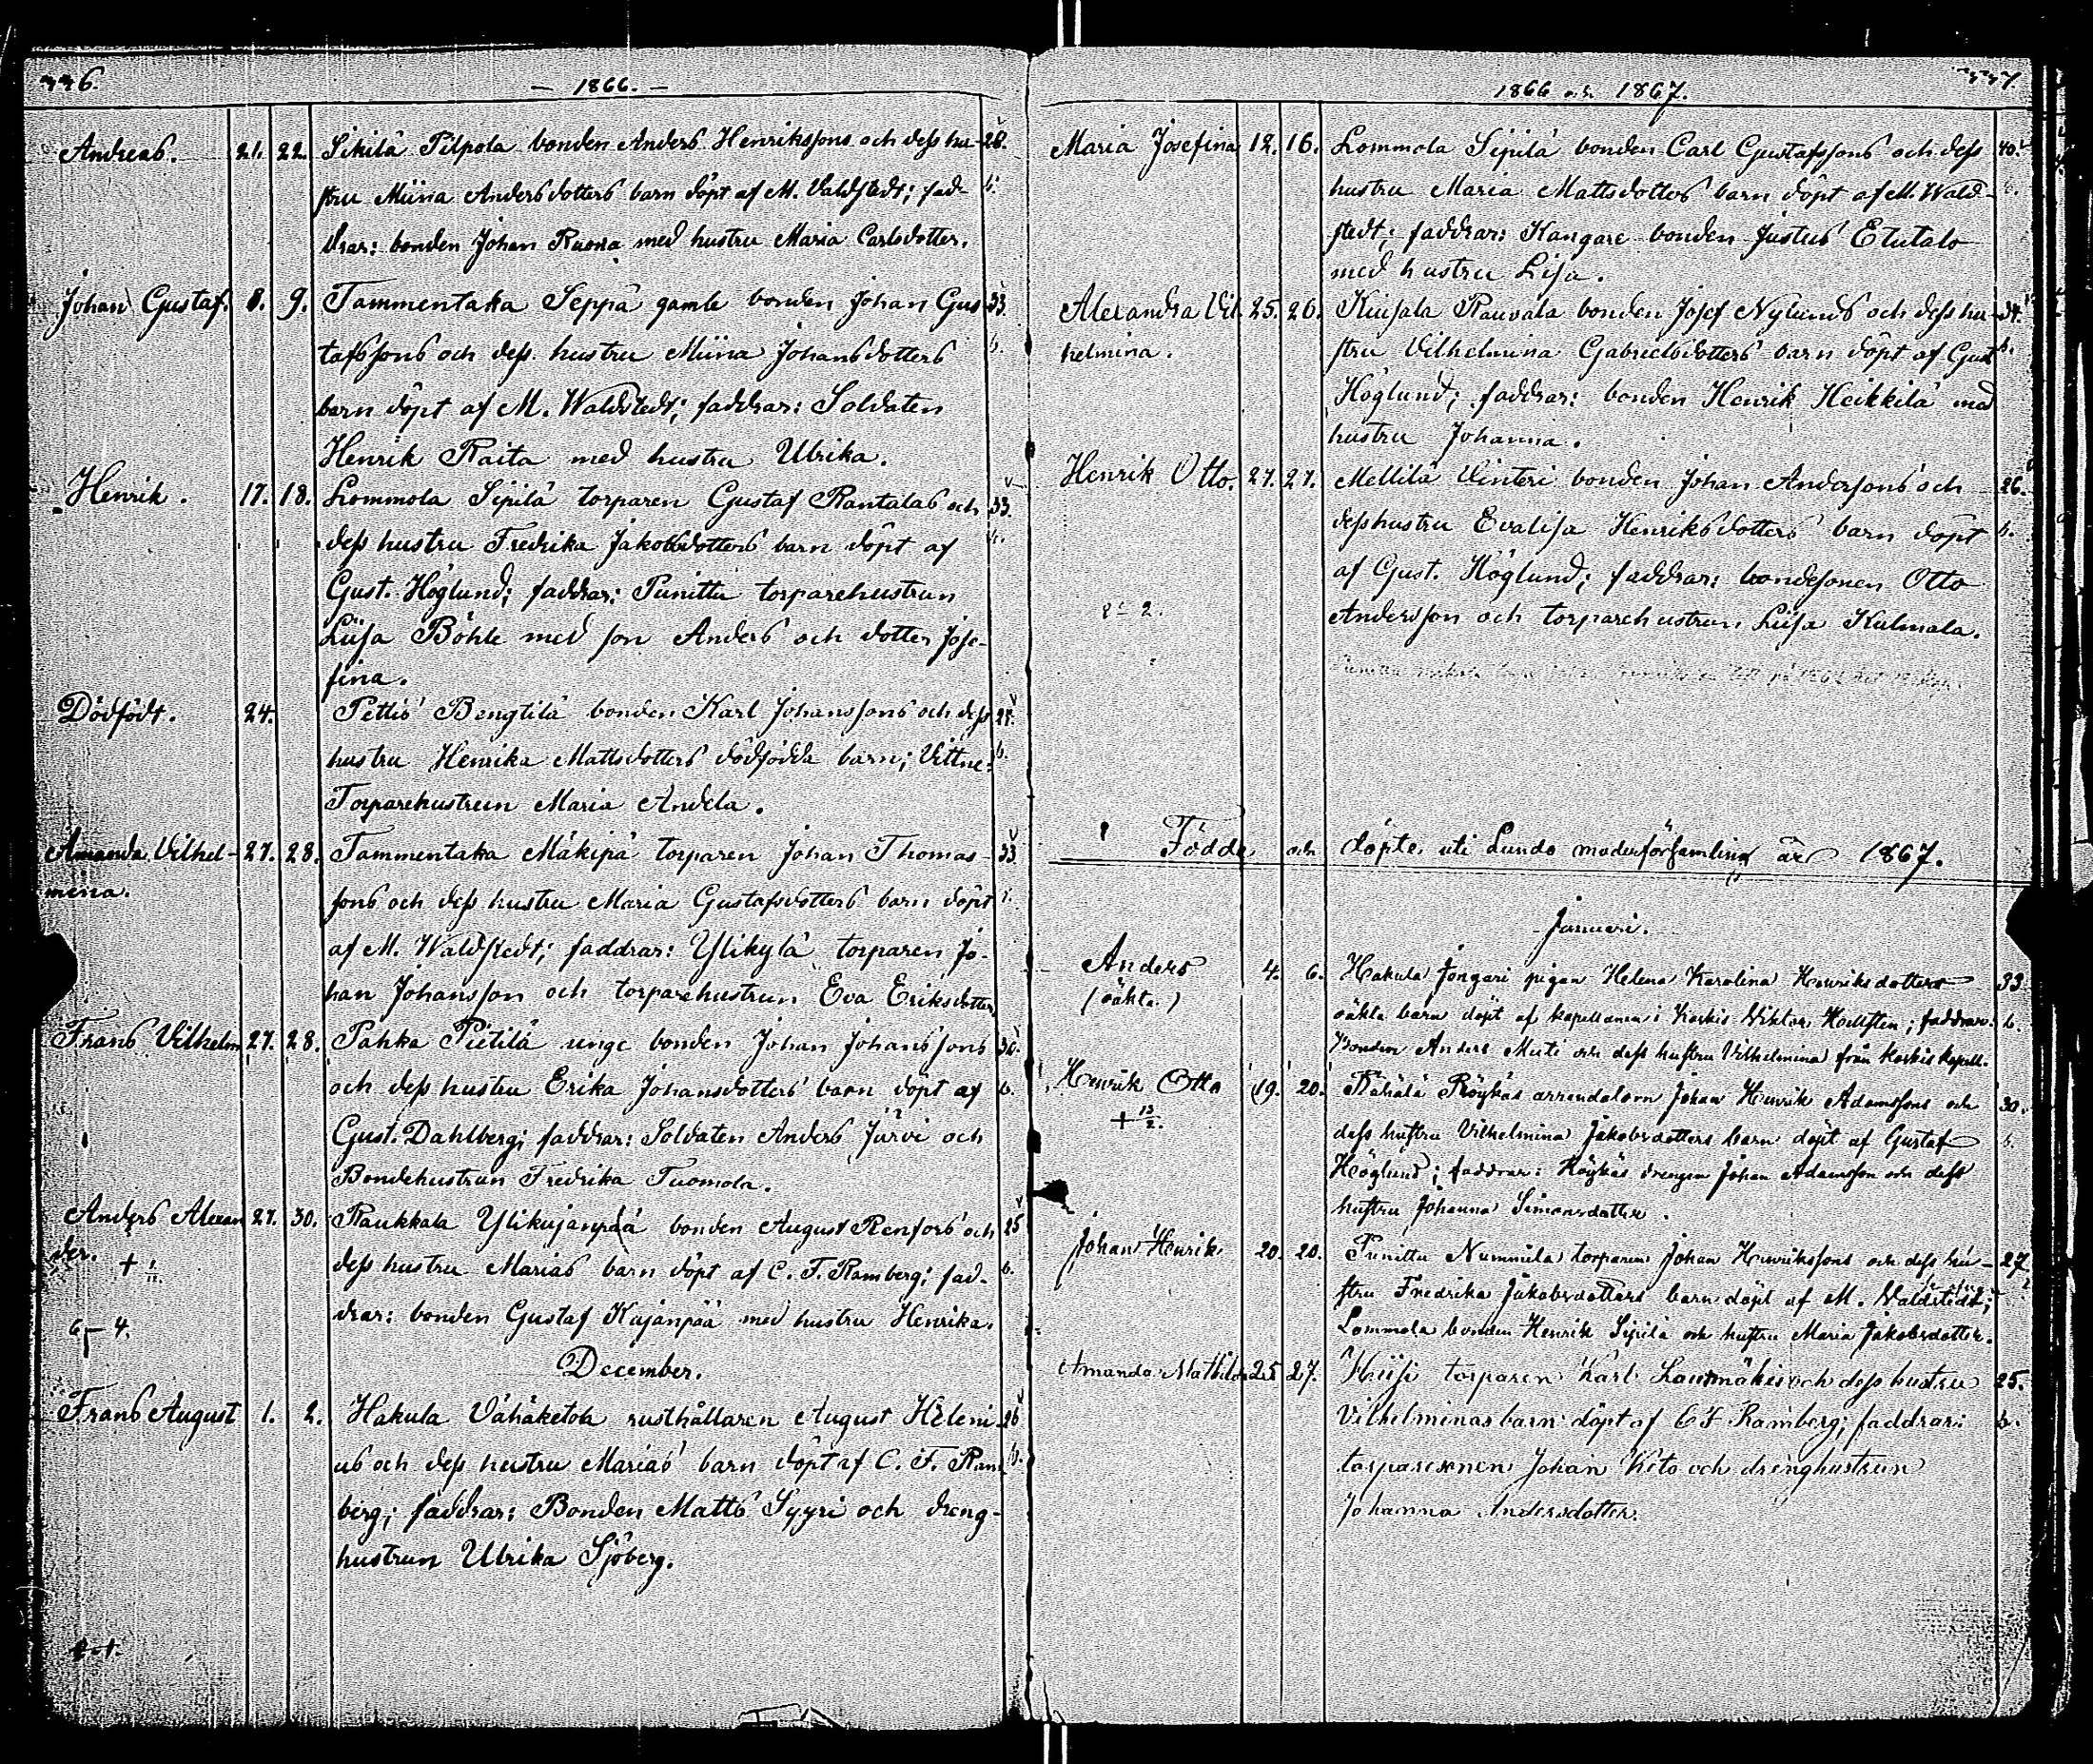 446.
— 1866. —
Andreas. 21. 22. Sikilä Pilpola bonden Anders Henrikssons och dess hu- 28.
stru Miina Andersdotters barn döpt af M. Valdstedt; fad- b.
drar: bonden Johan Ruona med hustru Maria Carlsdotter.
Johan Gustaf. 8. 9. Tammentaka Seppä gamle bonden Johan Gus- 33.
tafssons och dess hustru Miina Johansdotters b.
barn döpt af M. Waldstedt; faddrar: Soldaten
Henrik Raita med hustru Ulrika.
Henrik. 17. 18. Lommola Sipilä torparen Gustaf Rantalas och 33.
dess hustru Fredrika Jakobsdotters barn döpt af b.
Gust. Höglund; faddrar: Punittu torparehustrun
Liisa Böhle med son Anders och dotter Jose-
fina.
Dödfödt. 24. Pettis Bengtilä bonden Karl Johanssons och dess 24.
hustru Henrika Mattsdotters dödfödda barn; Vittne: b.
Torparehustrun Maria Andela.
Amanda Vilhel- 27. 28. Tammentaka Mäkipä torparen Johan Thomas- 33.
mina. sons och dess hustru Maria Gustafsdotters barn döpt
af M. Waldstedt; faddrar: Ylikylä torparen Jo-
han Johansson och torparehustrun Eva Eriksdotter.
Frans Vilhelm 27. 28. Pahka Pietilä unge bonden Johan Johanssons 30.
och dess hustru Erika Johansdotters barn döpt af b.
Gust. Dahlberg; faddrar: Soldaten Anders Järvi och
Bondehustrun Fredrika Tuomola.
Anders Alexan 27. 30. Raukkala Ylikujanpää bonden August Renfors och 25
der. + dess hustru Marias barn döpt af C. F. Ramberg; fad- b.
drar: bonden Gustaf Kujanpää med hustru Henrika.
6 — 4.
December.
Frans August 1. 2. Hakula Vähäketola rusthållaren August Heleni- 26
us och dess hustru Marias barn döpt af C. F. Ram b.
berg; faddrar: Bonden Matts Syyri och dreng-
hustrun Ulrika Sjöberg.
447.
1866 och 1867.
Maria Josefina 12. 16. Lommola Sipilä bonden Carl Gustafssons och dess 40.
hustru Maria Mattsdotters barn döpt af M. Wald- b.
stedt; faddrar: Kangare bonden Justus Etutalo
med hustru Lisa.
Alexandra Vil 25. 26. Kuisala Rauvala bonden Josef Nylunds och dess hu- 34.
helmina. stru Vilhelmina Gabrielsdotters barn döpt af Gust b.
Höglund; faddrar: bonden Henrik Heikkilä med
hustru Johanna.
Henrik Otto. 27. 27. Mellilä Vinteri bonden Johan Anderssons och 26.
dess hustru Evalisa Henriksdotters barn döpt b.
af Gust. Höglund; faddrar: bondesonen Otto
Andersson och torparehustrun Liisa Kulmala.
8 – 2.
Födde och döpte uti Lundo moderförsamling år 1867.
Januari.
Anders 4. 6. Hakula Jongari pigan Helena Karolina Henriksdotters 33
(oäkta.) oäkta barn döpt af kapellanen i Koskis Wiktor Hoeksten; faddrar: b.
Bonden Anders Muti och dess hustru Vilhelmina från Koskis kapell.
Henrik Otto 19. 20. Rähälä Röykäs arrendatorn Johan Henrik Adamssons och 30.
+ 13/2. dess hustru Vilhelmina Jakobsdotters barn döpt af Gustaf b.
Höglund; faddrar: Röykäs drengen Johan Adamsson och dess
hustru Johanna Simonsdotter.
Johan Henrik 20. 20. Punittu Nummila torparen Johan Henrikssons och dess hu- 27
stru Fredrika Jakobsdotters barn döpt af M. Waldstedt;
Lommola bonden Henrik Sipilä och hustru Maria Jakobsdotter.
Amanda Mathilda 25 27. Kiisi torparen Karl Laurmäkis och dess hustru 25.
Vilhelminas barn döpt af C F Ramberg; faddrar: b.
torparesonen Johan Keto och drenghustrun
Johanna Andersdotter.